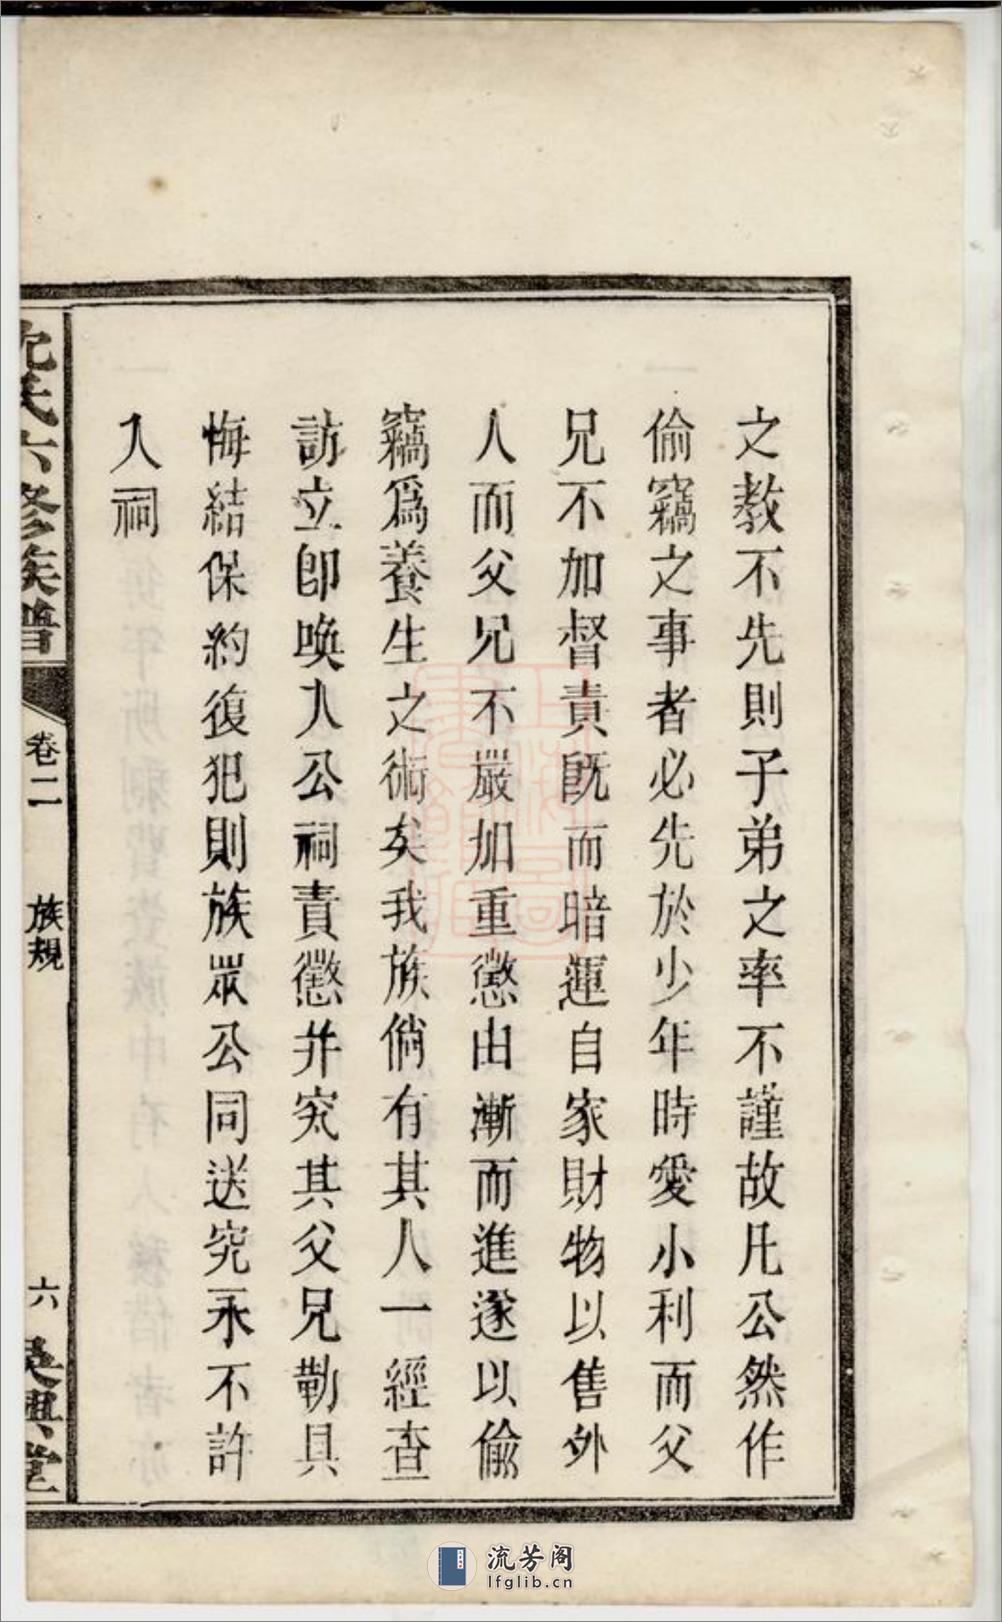 之教不先則子弟之率不謹故凡公然作
偷竊之事者必先於少年時愛小利而父
兄不加督責既而暗運自家財物以售外
人而父兄不嚴加重懲由漸而進遂以偷
竊爲養生之術矣我族倘有其人一經查
訪立即喚入公祠責懲并究其父兄勒具
悔結保約復犯則族眾公同送究永不許
入祠
沈氏六修族譜
卷二
族規
六
吳興堂
流芳阁
lfglib.cn